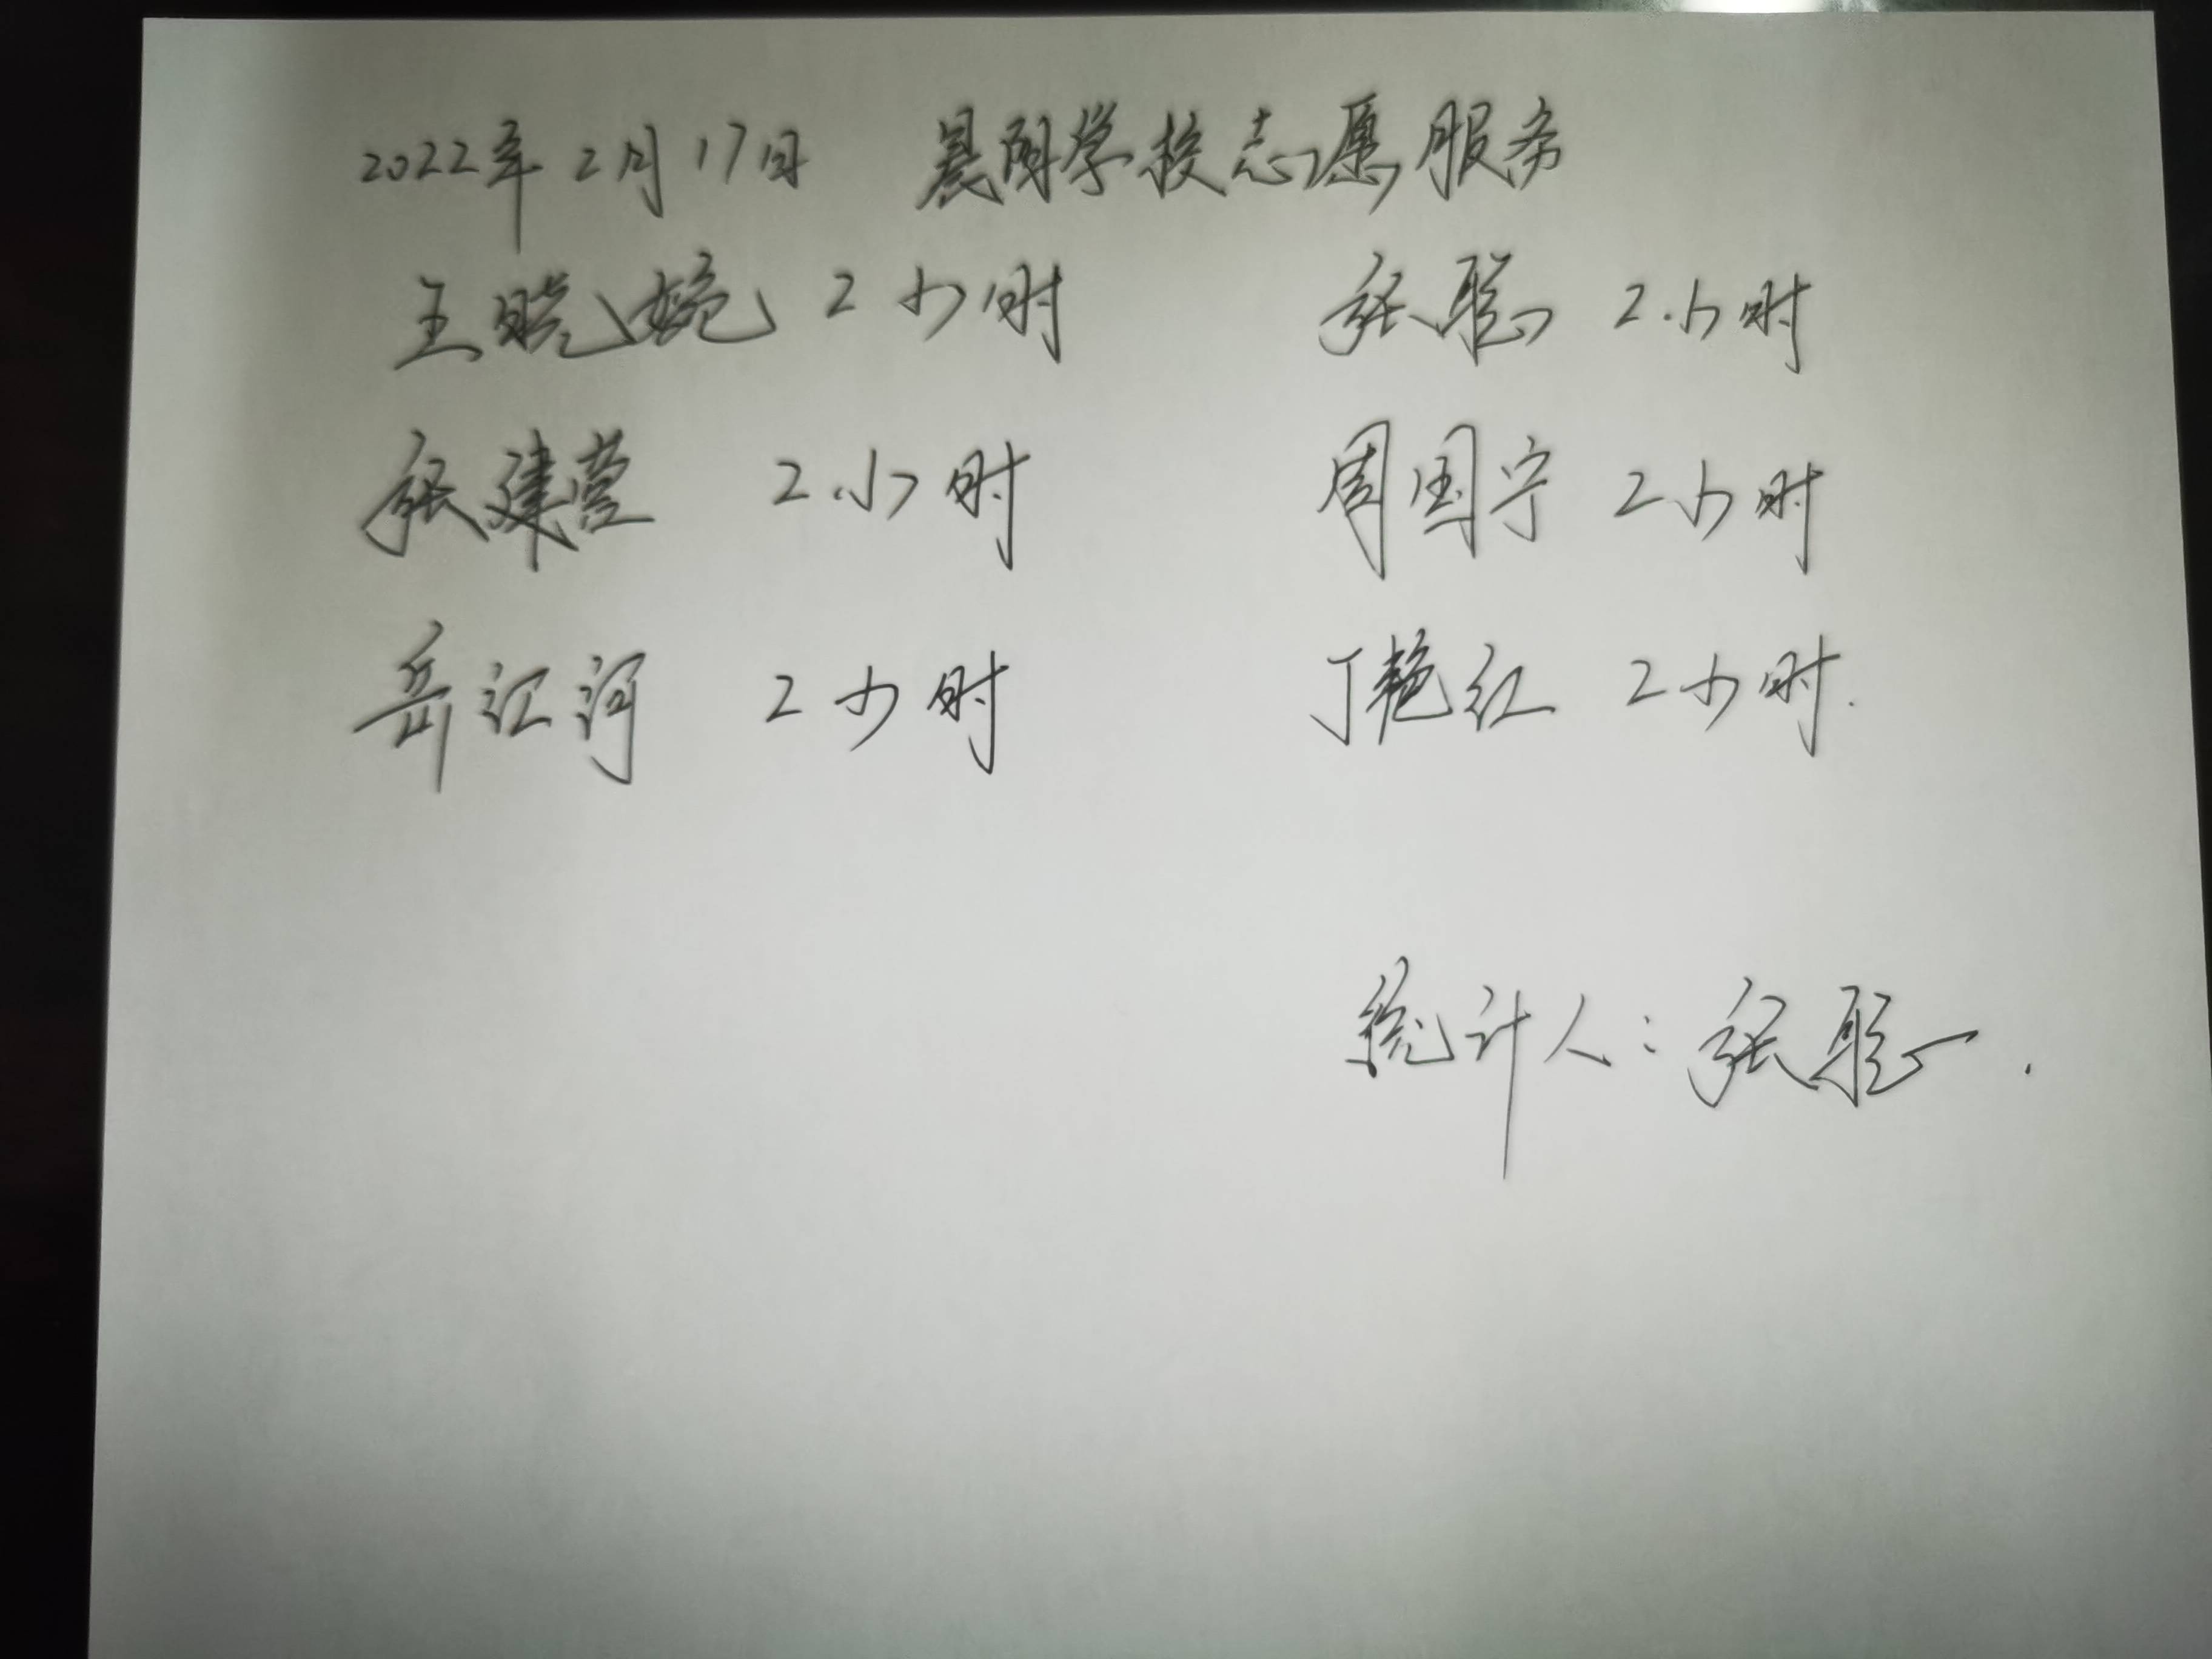 2022年2月17日 晨阳学校志愿服务
王晓婉 2小时 张聪 2小时
张建营 2小时 周国宁 2小时
岳江河 2小时 丁艳红 2小时.
统计人：张聪.